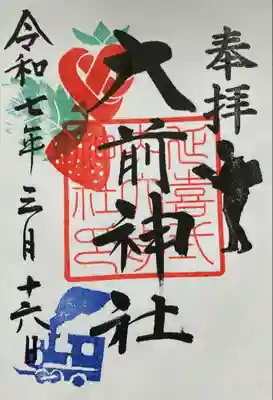 奉拝
大前神社
令和七年三月十六日
延喜式
神社印